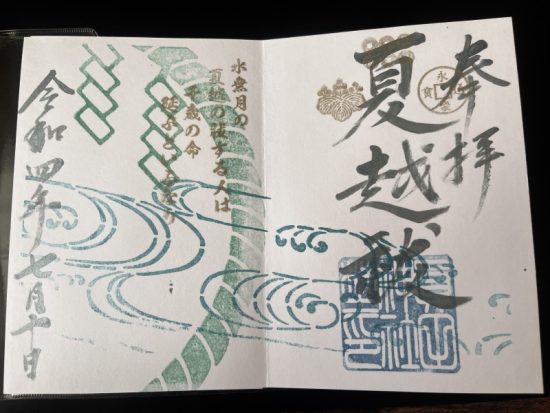 奉拝
夏越祓
水無月の
夏越の祓する人は
千歳の命
延ぶといふなり
令和四年七月十日